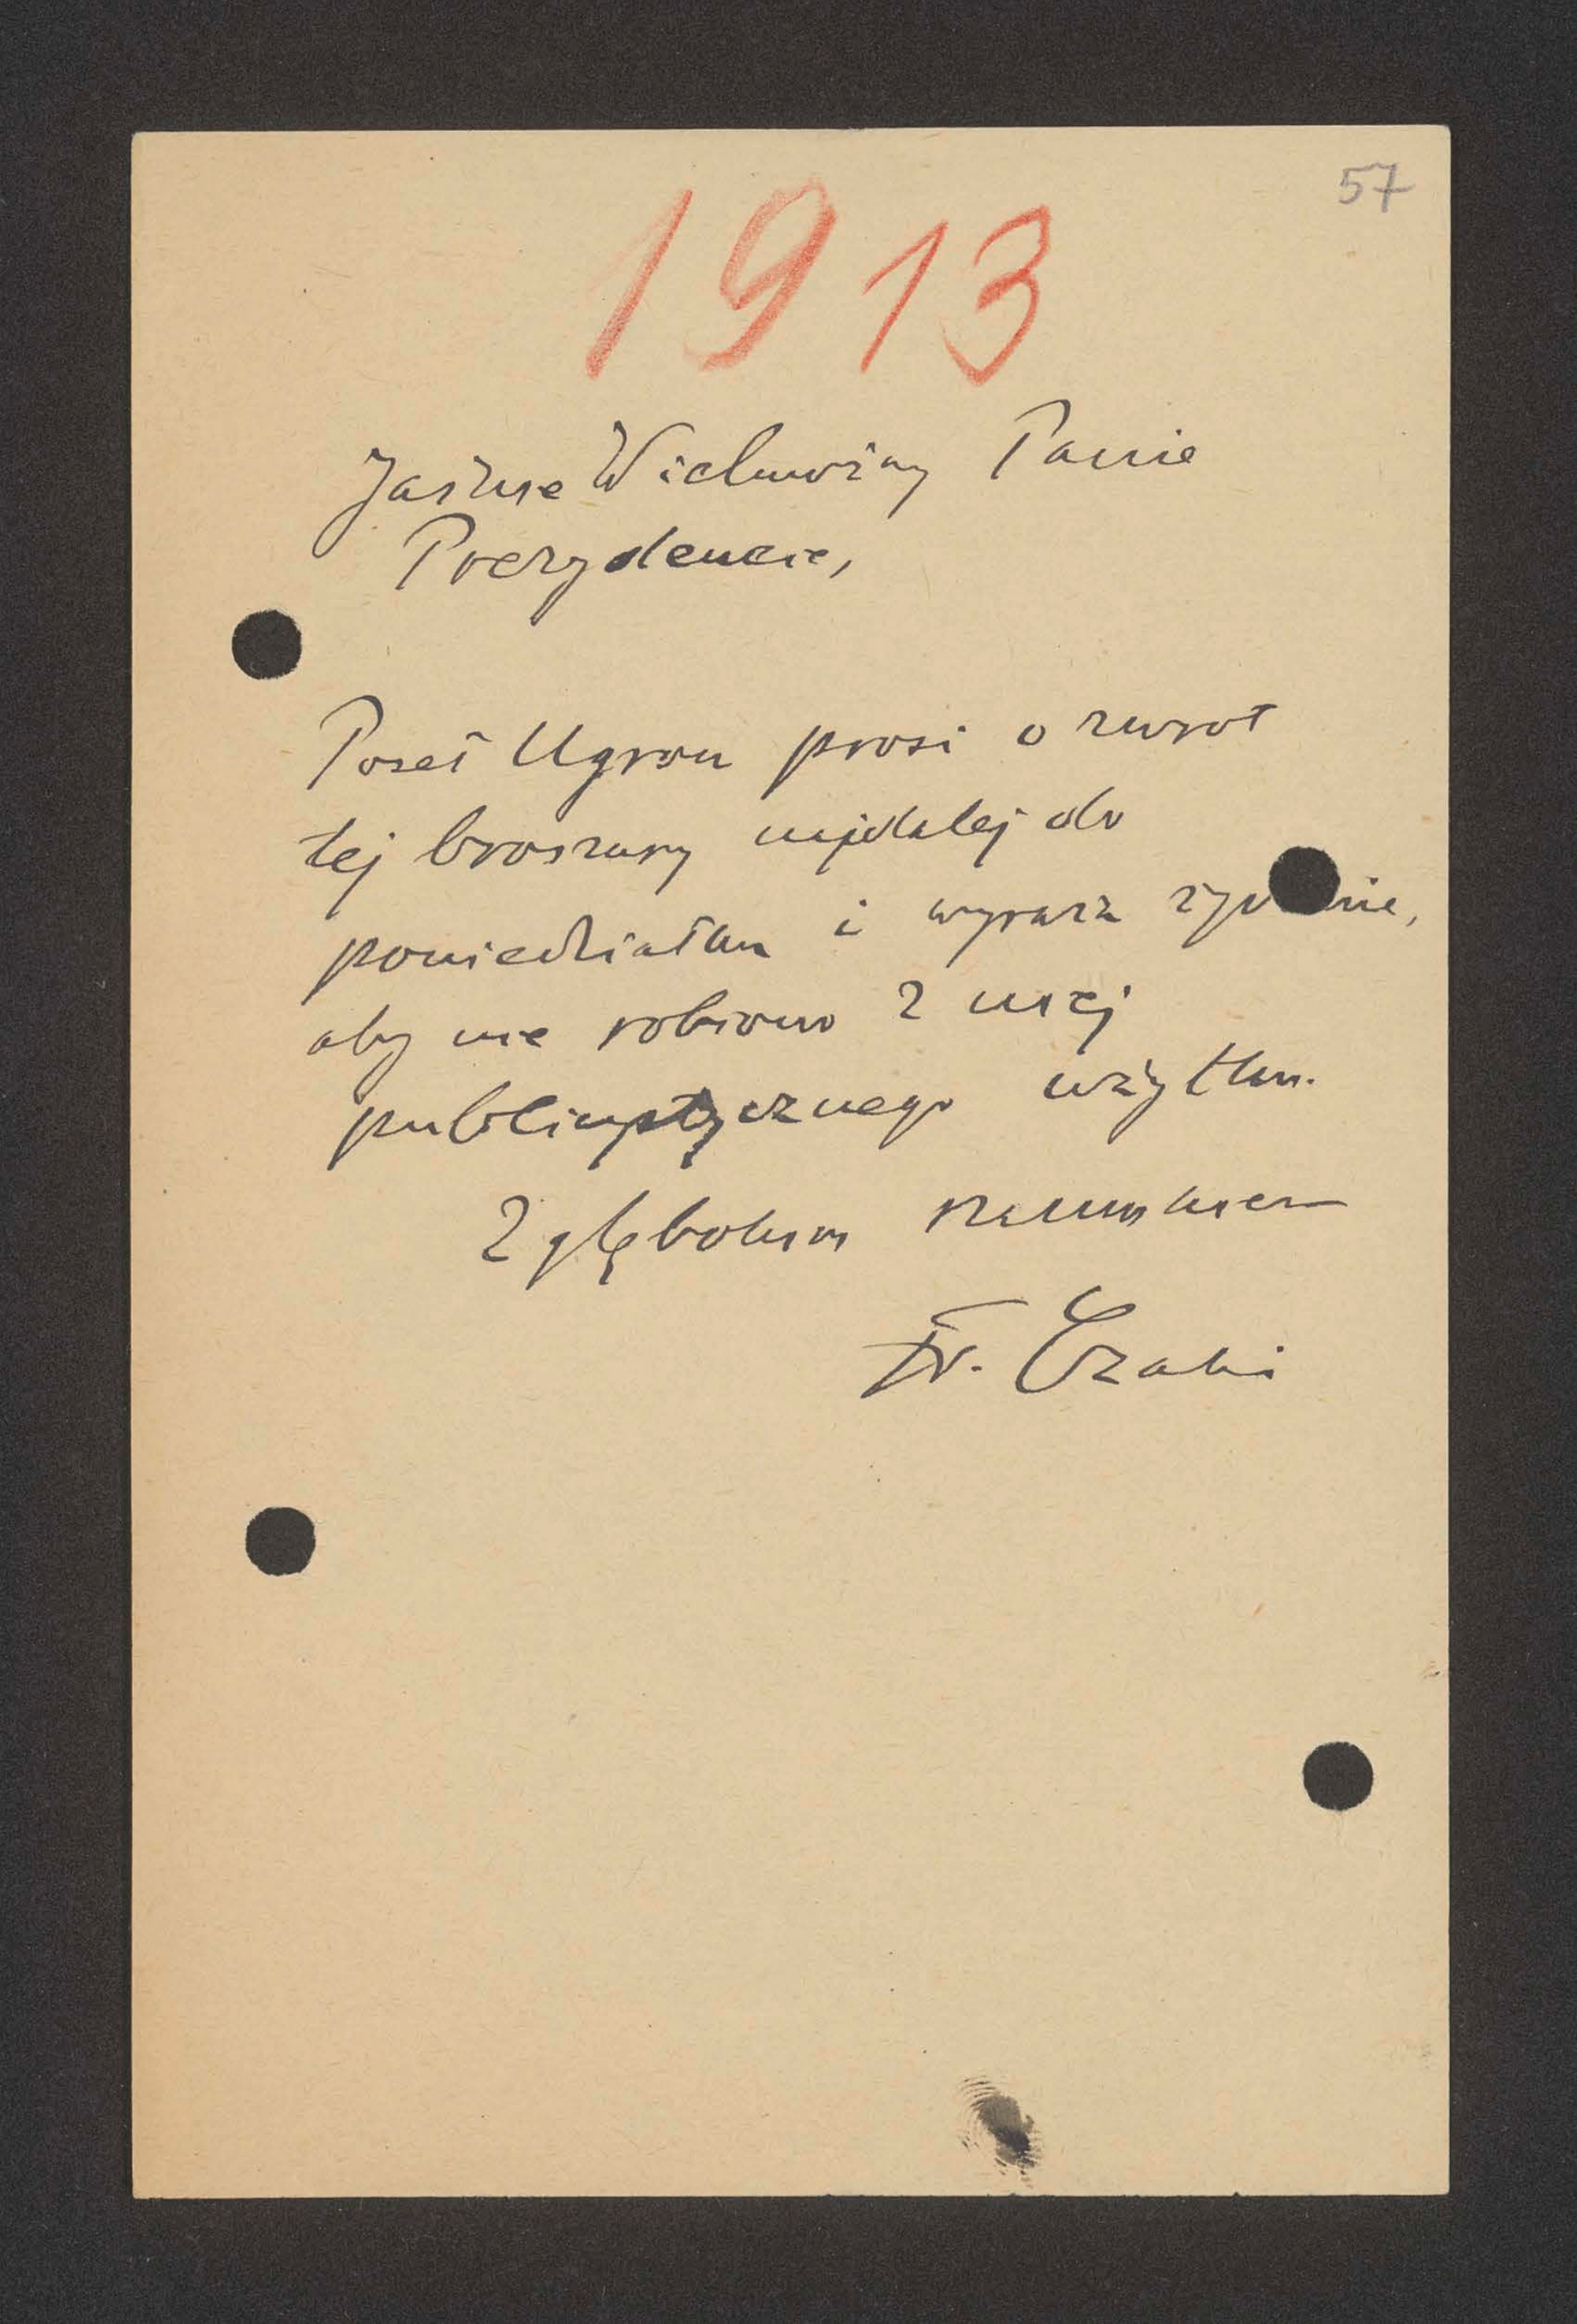 57
1913
Jaśnie Wielmożny Panie
Prezydencie,
Poseł Ugron prosi o zwrot
tej broszury najdalej do
poniedziałku i wyraża życzenie,
aby nie robiono z niej
publicystycznego użytku.
Z głębokim szacunkiem
Fr. Czaki